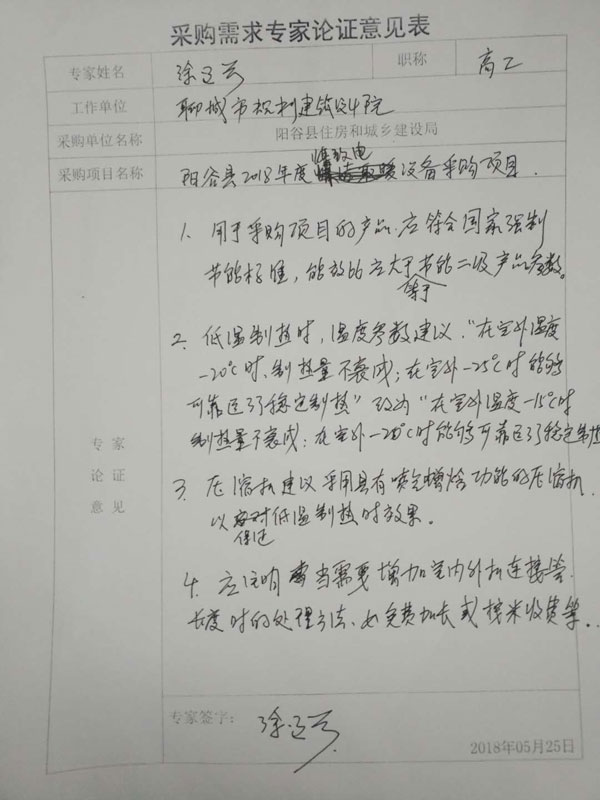 采购需求专家论证意见表
专家姓名 徐 职称 高工
工作单位 聊城市规划建筑设计院
采购单位名称 阳谷县住房和城乡建设局
煤改电
采购项目名称 阳谷县2018年度设备采购项目.
1. 用于采购项目的产品.应符合国家强制
节能标准，能效比应大于节能二级产品参数。
等于
2. 低温制热时，温度参数建议."在室外温度
-20℃时、制热量不衰减；在室外-25℃时能够
可靠运行稳定制热"改为"在室外温度-15℃时
制热量不衰减；在室外-20℃时能够可靠运行稳定制热
专家
论证
意见
3. 压缩机建议采用具有喷气增焓功能的压缩机
以低温制热时效果。
保证
4. 应注明当需要增加室内外机连接管
长度时的处理方法、如免费加长或按米收费等..
专家签字: 徐
2018年05月25日